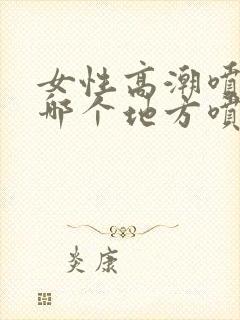 女性高潮喷
哪个地方喷
炎康